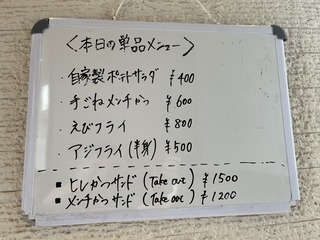 <本日の単品メニュー>
・自家製ポテトサラダ ¥400
・手ごねメンチかつ ¥600
・えびフライ ¥800
・アジフライ(半身) ¥500
■ヒレかつサンド (Take out) ¥1500
■メンチかつサンド (Take out) ¥1200